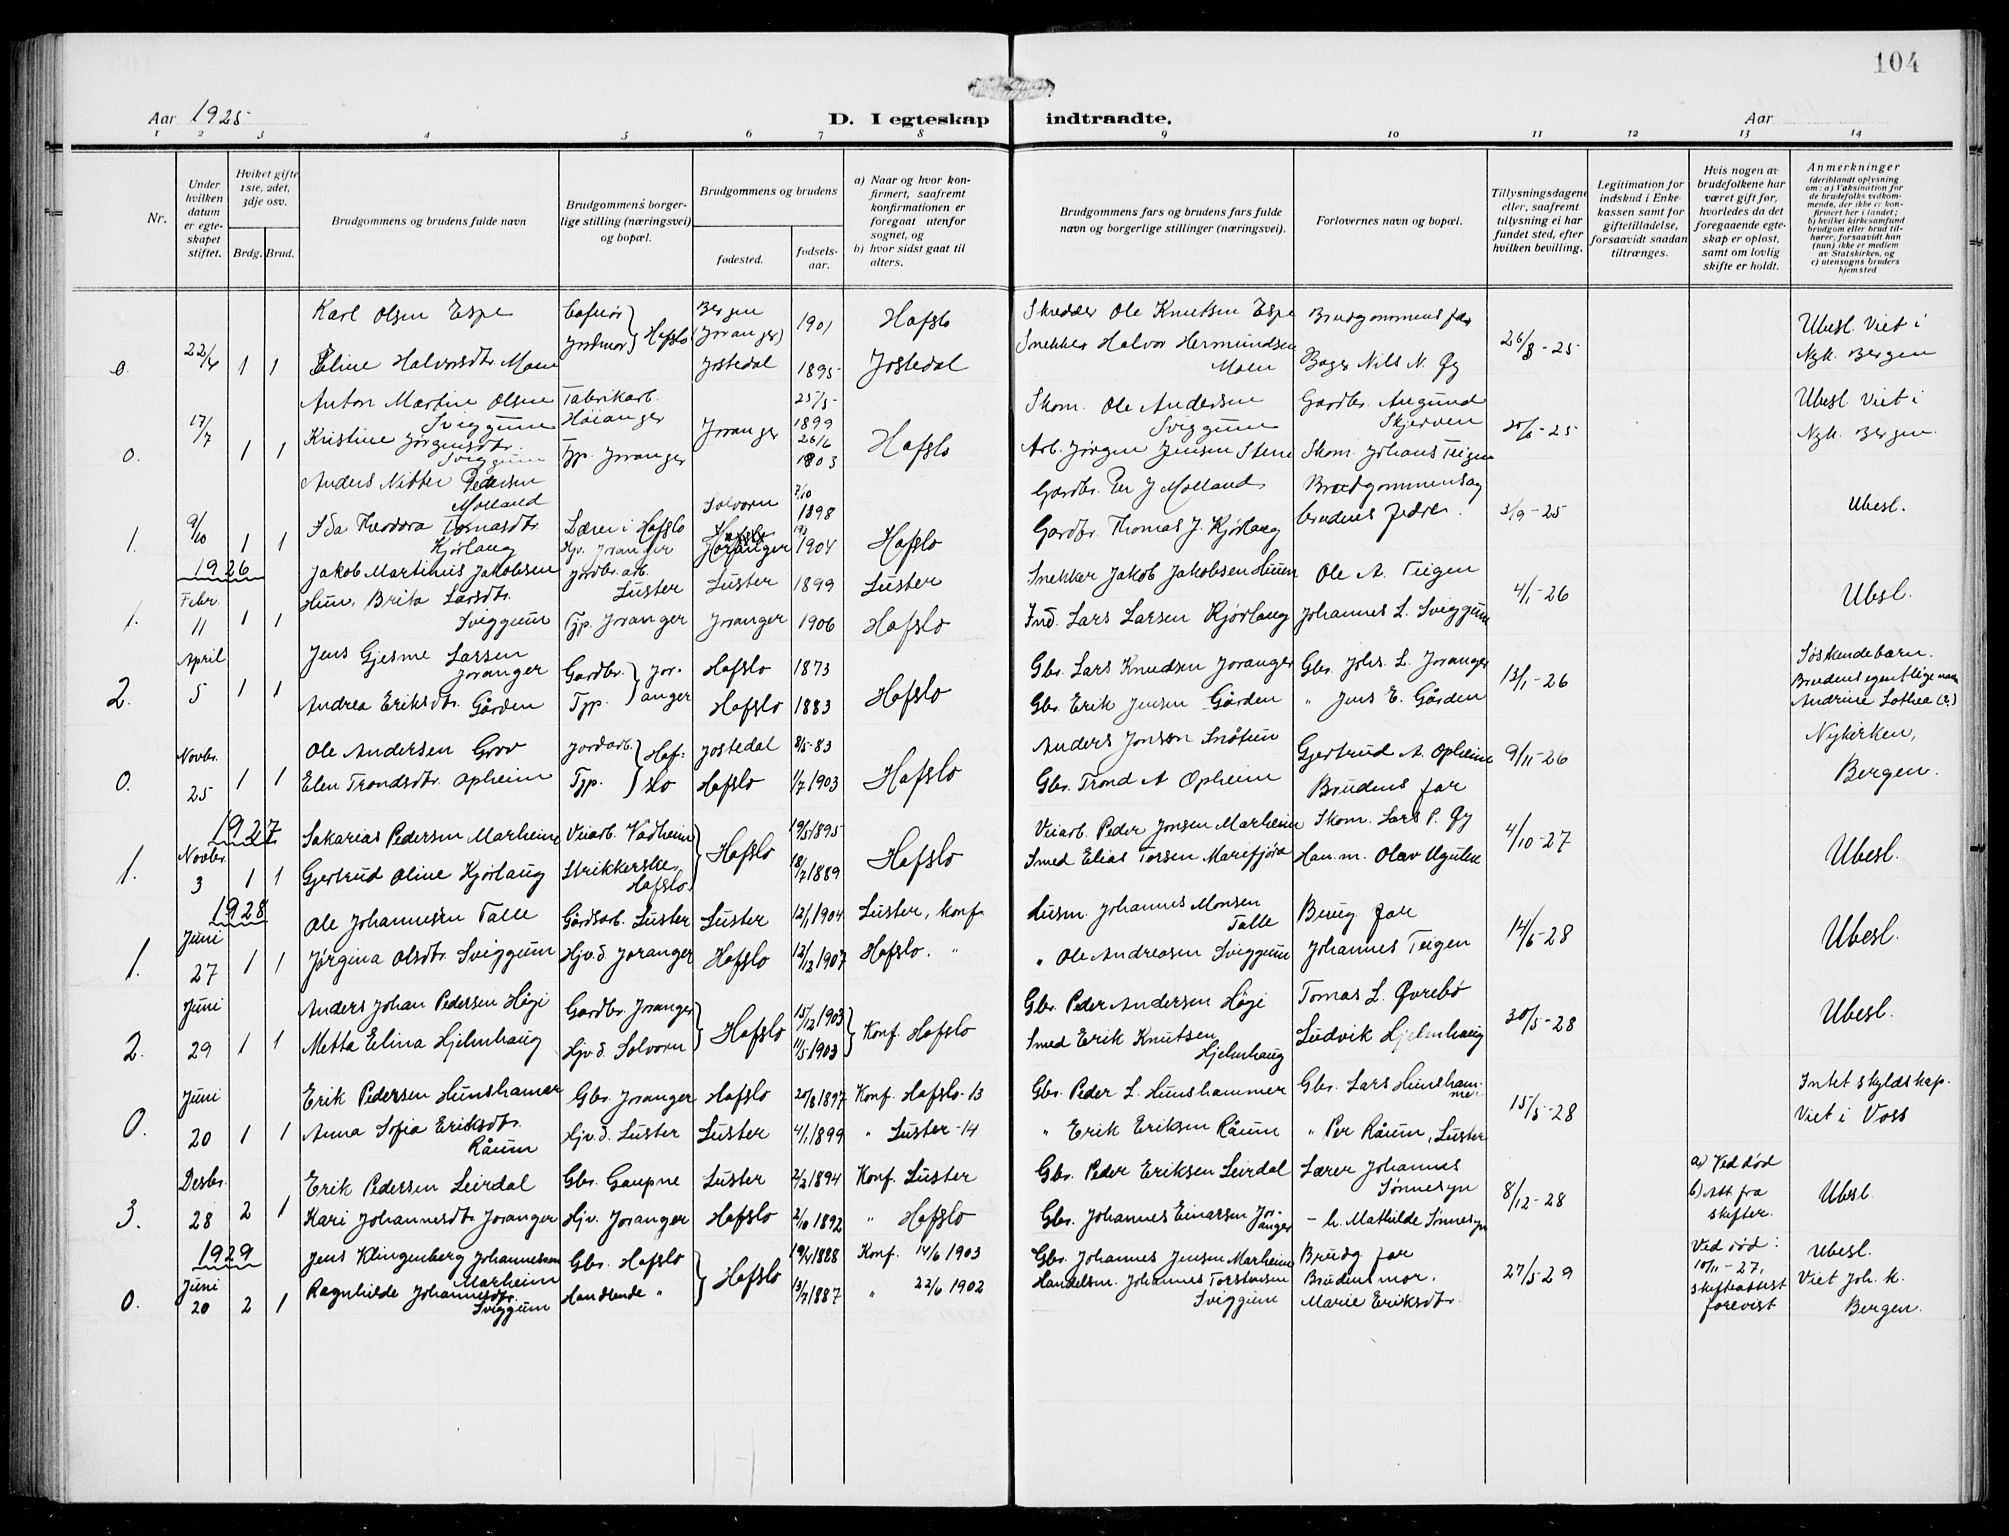 104
Aar 1925
D. I egteskap indtraadte.
Aar
1 2 3 4 5 6 7 8 9 10 11 12 13 14
Nr.
Under hvilken datum er egteskapet stiftet.
Hviket gifte 1ste, 2det, 3dje osv.
Brdg. Brud.
Brudgommens og brudens fulde navn
Brudgommens borgerlige stilling (næringsvei) og bopæl.
Brudgommens og brudens
fødested.
fødselsaar.
a) Naar og hvor konfirmert, saafremt konfirmationen er foregaat utenfor sognet, og
b) hvor sidst gaat til alters.
Brudgommens fars og brudens fars fulde navn og borgerlige stillinger (næringsvei).
Forlovernes navn og bopæl.
Tillysningsdagene eller, saafremt tillysning ei har fundet sted, efter hvilken bevilling.
Legitimation for indskud i Enkekassen samt for giftetilladelse, forsaavidt saadan tiltrænges.
Hvis nogen av brudefolkene har været gift før, hvorledes da det foregaaende egteskap er opløst, samt om lovlig skifte er holdt.
Anmerkninger (deriblandt oplysning om: a) Vaksination for de brudefolks vedkommende, der ikke er konfirmert her i landet; b) hvilket kirkesamfund brudgom eller brud tilhører, forsaavidt han (hun) ikke er medlem av Statskirken, og c) utensogns bruders hjemsted
Karl Olsen Espe Bergen 1901 Hafslo Skredder Ole Knutsen Espe Brudgommens far Ubesl. Viet i
0. 22/4 1 1 Eline Halvorsdtr Moen Jordmor Hafslo (Joranger) Jostedal 1895 Jostedal Snekker Halvor Hermundsen Moen Bager Nils N. Øy 26/3-25 Nyk. Bergen
Anton Martin Olsen Sviggum Fabrikarb. Høianger 25/5 1899 Skom. Ole Andersen Sviggum Gardbr. Augund Skjerven Ubesl. Viet i
0. 17/7 1 1 Kristine Jørgensdtr. Sviggum Tjp. Joranger Joranger 26/6 1903 Hafslo Arb. Jørgen Jensen Stene Skom. Johans Teigen 20/6-25 Nyk. Bergen.
Anders Nitter Pedersen Molland Lærer i Hafslo Solvorn 7/10 1898 Gardbr. Per J Molland Brudgommens og
1. 9/10 1 1 Ida Theodora Tomasdtr Kjørlaug Hjv. Joranger Joranger 1904 Hafslo Gardbr. Thomas J. Kjørlaug brudens fedre. 3/9-25 Ubesl.
1926
Jakob Martinus Jakobsen Huun, Jordbr. arb. Luster Luster 1899 Luster Snekker Jakob Jakobsen Huun Ole A. Teigen
1. Febr. 11 1 1 Brita Larsdtr. Sviggum Tjp. Joranger Joranger 1906 Hafslo Ind. Lars Larsen Kjørlaug Johannes L. Sviggum 4/1-26 Ubesl.
April Jens Gjesme Larsen Joranger Gardbr. Joranger Hafslo 1873 Gbr. Lars Knudsen Joranger Gbr. Johs. L. Joranger Søskendebarn.
2. 5 1 1 Andrea Eriksdtr. Gården Tjp. Hafslo 1883 Hafslo Gbr. Erik Jensen Gården " Jens E. Gården 13/1-26 Brudens egentlige navn Andrine Lothea (?)
Novbr. Ole Andersen Grov Jordarb. Hafslo Jostedal 8/5-83 Anders Jonson Snøtun Gjertrud A. Opheim Nykirken,
0. 25 1 1 Elen Trondsdtr. Opheim Tjp. Hafslo 1/7 1903 Hafslo Gbr. Trond A Opheim Brudens far 9/11-26 Bergen.
1927
Novbr. Sakarias Pedersen Marheim Veiarb. Vadheim Hafslo 19/5 1895 Veiarb. Peder Jonsen Marheim Skom. Lars P. Øy
1. 3 1 1 Gjertrud Oline Kjørlaug Strikkerske, Hafslo 18/7 1889 Hafslo Smed Elias Torsen Marifjøra Han.m. Olav Ugulen 4/10-27 Ubesl.
1928
Juni Ole Johannesen Talle Gårdsarb. Luster Luster 12/1 1904 Luster, konf. Husm. Johannes Monsen Talle Brug far
1. 27 1 1 Jørgina Olsdtr. Sviggum Hjv.d. Joranger Hafslo 12/12 1907 Hafslo. " " Ole Andreasen Sviggum Johannes Teigen 14/6-28 Ubesl.
Juni Anders Johan Pedersen Høgi Gardbr. Joranger Hafslo 15/2 1903 Konf. Hafslo Gbr. Peder Andersen Høgi Tomas L. Øvrebø
2. 29 1 1 Metta Elina Hjelmhaug Hjv d. Solvorn 11/5 1903 Smed Erik Knutsen Hjelmhaug Ludvik Hjelmhaug 30/5-28 Ubesl.
Juni Erik Pedersen Hunshamar Gbr. Joranger Hafslo 20/8 1897 Konf. Hafslo-13 Gbr. Peder L. Hunshammer Gbr. Lars Hunshammer Intet skyldskap.
0. 20 1 1 Anna Sofia Eriksdtr. Råum Hjv.d. Luster Luster 4/1 1899 " Luster-14 " Erik Eriksen Råum " Per Råum, Luster 15/5-28 Viet i Voss
Desbr. Erik Pedersen Leirdal Gbr. Gaupne Luster 2/2 1894 Konf. Luster Gbr. Peder Eriksen Leirdal Lærer Johannes Sønnesyn a) Ved død
3. 28 2 1 Kari Johannesdtr Joranger Hjv. Joranger Hafslo 2/10 1892 " Hafslo Gbr. Johannes Einarsen Joranger - h. Mathilde Sønnesyn 8/12-28 b) Att fra skifter. Ubesl.
1929
Juni Jens Klingenberg Johannessen Marheim Gbr. Hafslo Hafslo 19/4 1888 Konf. 14/6 1903 Gbr. Johannes Jensen Marheim Brudg far Ved død: 10/11-27, Ubesl.
0. 20 2 1 Ragnhilde Johannesdtr. Sviggum Handlende " 13/7 1887 " 22/6 1902 Handelsm. Johannes Torstensen Sviggum Brudens mor. Marie Eriksdtr. 27/5-29 skifteattest forevist Viet Joh. k. Bergen.